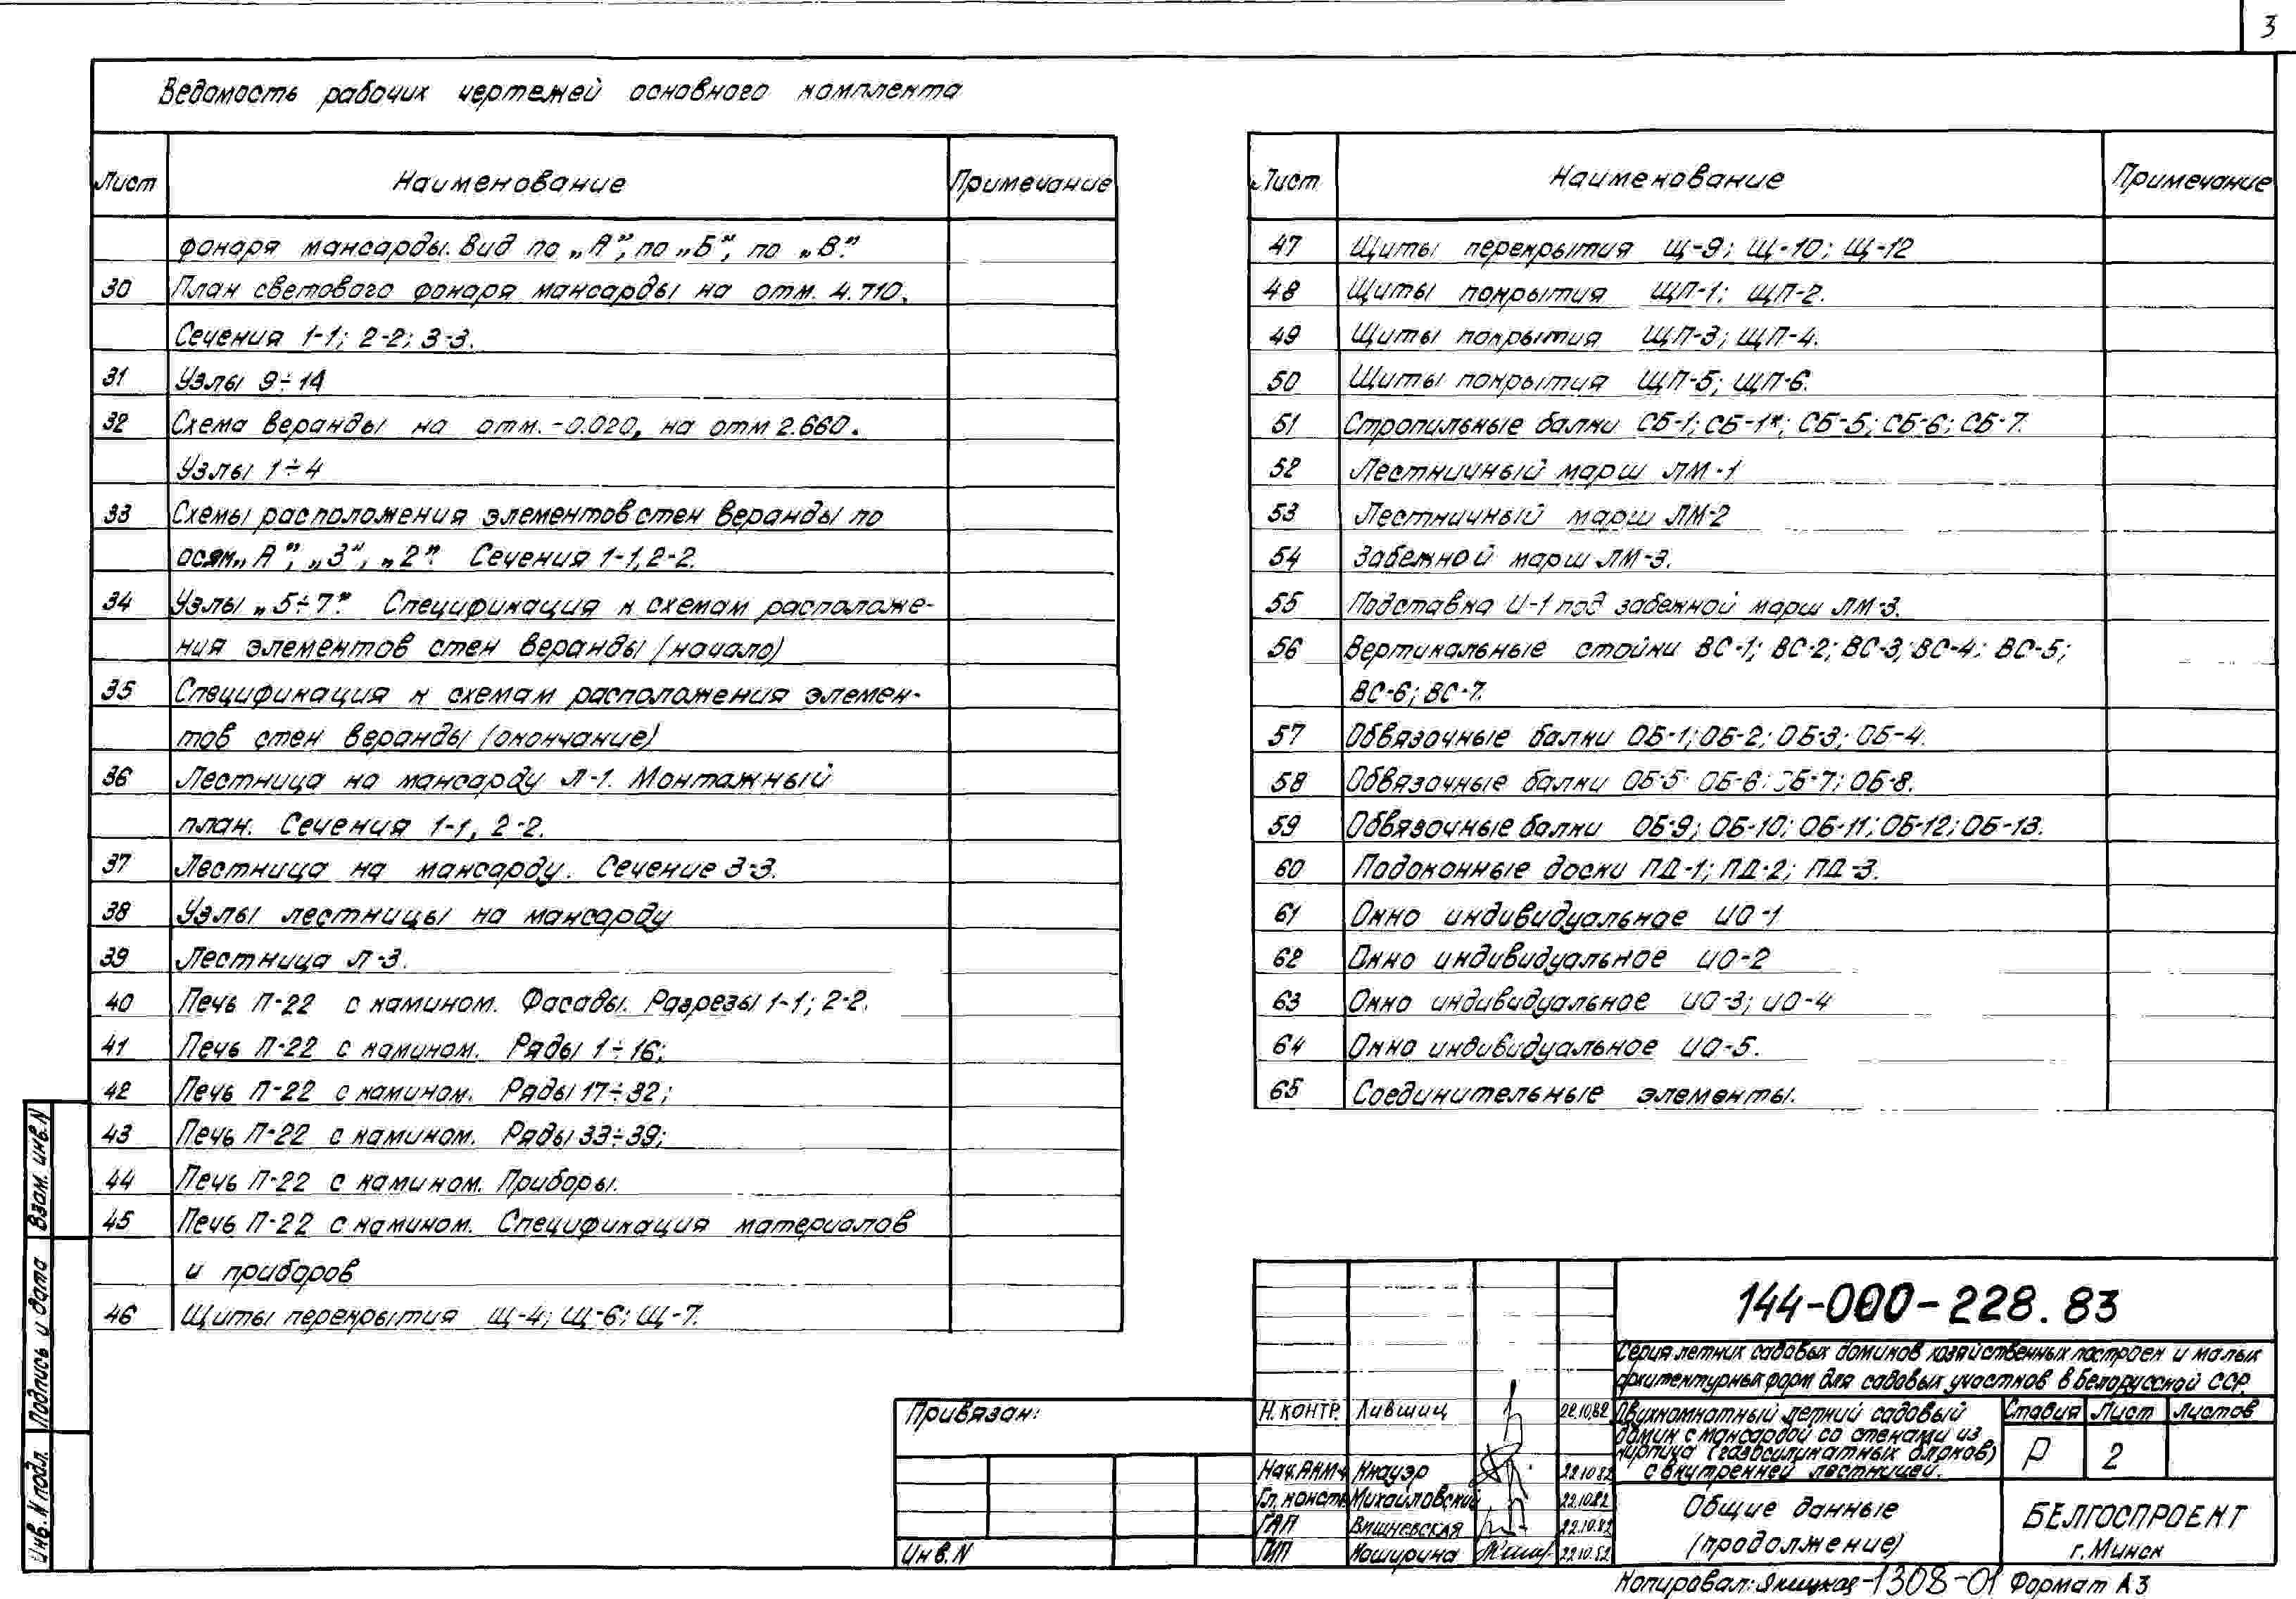 3
Ведомость рабочих чертежей основного комплекта
Лист Наименование Примечание
фонаря мансарды. Вид по „А”, по „Б”, по „В”.
30 План светового фонаря мансарды на отм. 4.710.
Сечения 1-1; 2-2; 3-3.
31 Узлы 9÷14
32 Схема веранды на отм. -0.020, на отм 2.660.
Узлы 1÷4
33 Схемы расположения элементов стен веранды по
осям „А”, „3”, „2”. Сечения 1-1, 2-2.
34 Узлы „5÷7”. Спецификация к схемам расположе-
ния элементов стен веранды (начало)
35 Спецификация к схемам расположения элемен-
тов стен веранды (окончание)
36 Лестница на мансарду Л-1. Монтажный
план. Сечения 1-1, 2-2.
37 Лестница на мансарду. Сечение 3-3.
38 Узлы лестницы на мансарду
39 Лестница Л-3.
40 Печь П-22 с камином. Фасады. Разрезы 1-1; 2-2.
41 Печь П-22 с камином. Ряды 1÷16;
42 Печь П-22 с камином. Ряды 17÷32;
43 Печь П-22 с камином. Ряды 33÷39;
44 Печь П-22 с камином. Приборы.
45 Печь П-22 с камином. Спецификация материалов
и приборов
46 Щиты перекрытия Щ-4; Щ-6; Щ-7.
Лист Наименование Примечание
47 Щиты перекрытия Щ-9; Щ-10; Щ-12
48 Щиты покрытия ЩП-1; ЩП-2.
49 Щиты покрытия ЩП-3; ЩП-4.
50 Щиты покрытия ЩП-5; ЩП-6.
51 Стропильные балки СБ-1; СБ-1*; СБ-5; СБ-6; СБ-7.
52 Лестничный марш ЛМ-1
53 Лестничный марш ЛМ-2
54 Забежной марш ЛМ-3.
55 Подставка И-1 под забежной марш ЛМ-3.
56 Вертикальные стойки ВС-1; ВС-2; ВС-3; ВС-4; ВС-5;
ВС-6; ВС-7.
57 Обвязочные балки ОБ-1; ОБ-2; ОБ-3; ОБ-4.
58 Обвязочные балки ОБ-5; ОБ-6; ОБ-7; ОБ-8.
59 Обвязочные балки ОБ-9; ОБ-10; ОБ-11; ОБ-12; ОБ-13.
60 Подоконные доски ПД-1; ПД-2; ПД-3.
61 Окно индивидуальное ИО-1
62 Окно индивидуальное ИО-2
63 Окно индивидуальное ИО-3; ИО-4
64 Окно индивидуальное ИО-5.
65 Соединительные элементы.
Инв. N подл. Подпись и дата Взам. инв. N
Привязан:
Инв. N
144-000-228.83
Серия летних садовых домиков хозяйственных построек и малых
архитектурных форм для садовых участков в Белорусской ССР.
Н. КОНТР. Лившиц 22.10.82
Нач. АКМ-4 Кнауэр 22.10.82
Гл. констр. Михайловский 22.10.82
ГАП Вишневская 22.10.82
ГИП Каширина 22.10.82
Двухкомнатный летний садовый
домик с мансардой со стенами из
кирпича (газосиликатных блоков)
с внутренней лестницей.
Стадия Лист Листов
Р 2
Общие данные
(продолжение)
БЕЛГОСПРОЕКТ
г. Минск
Копировал: 1308-01 Формат А3